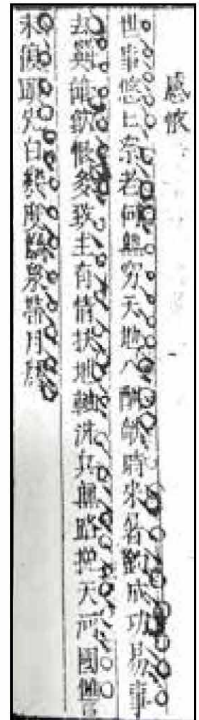 感懷
世事悠〻奈若何無窮天地入酣歌時來屠釣成功易事
去英雄飲恨多致主有懷扶地軸洗兵無路挽天河國讎
未復頭先白幾度龍泉帶月磨